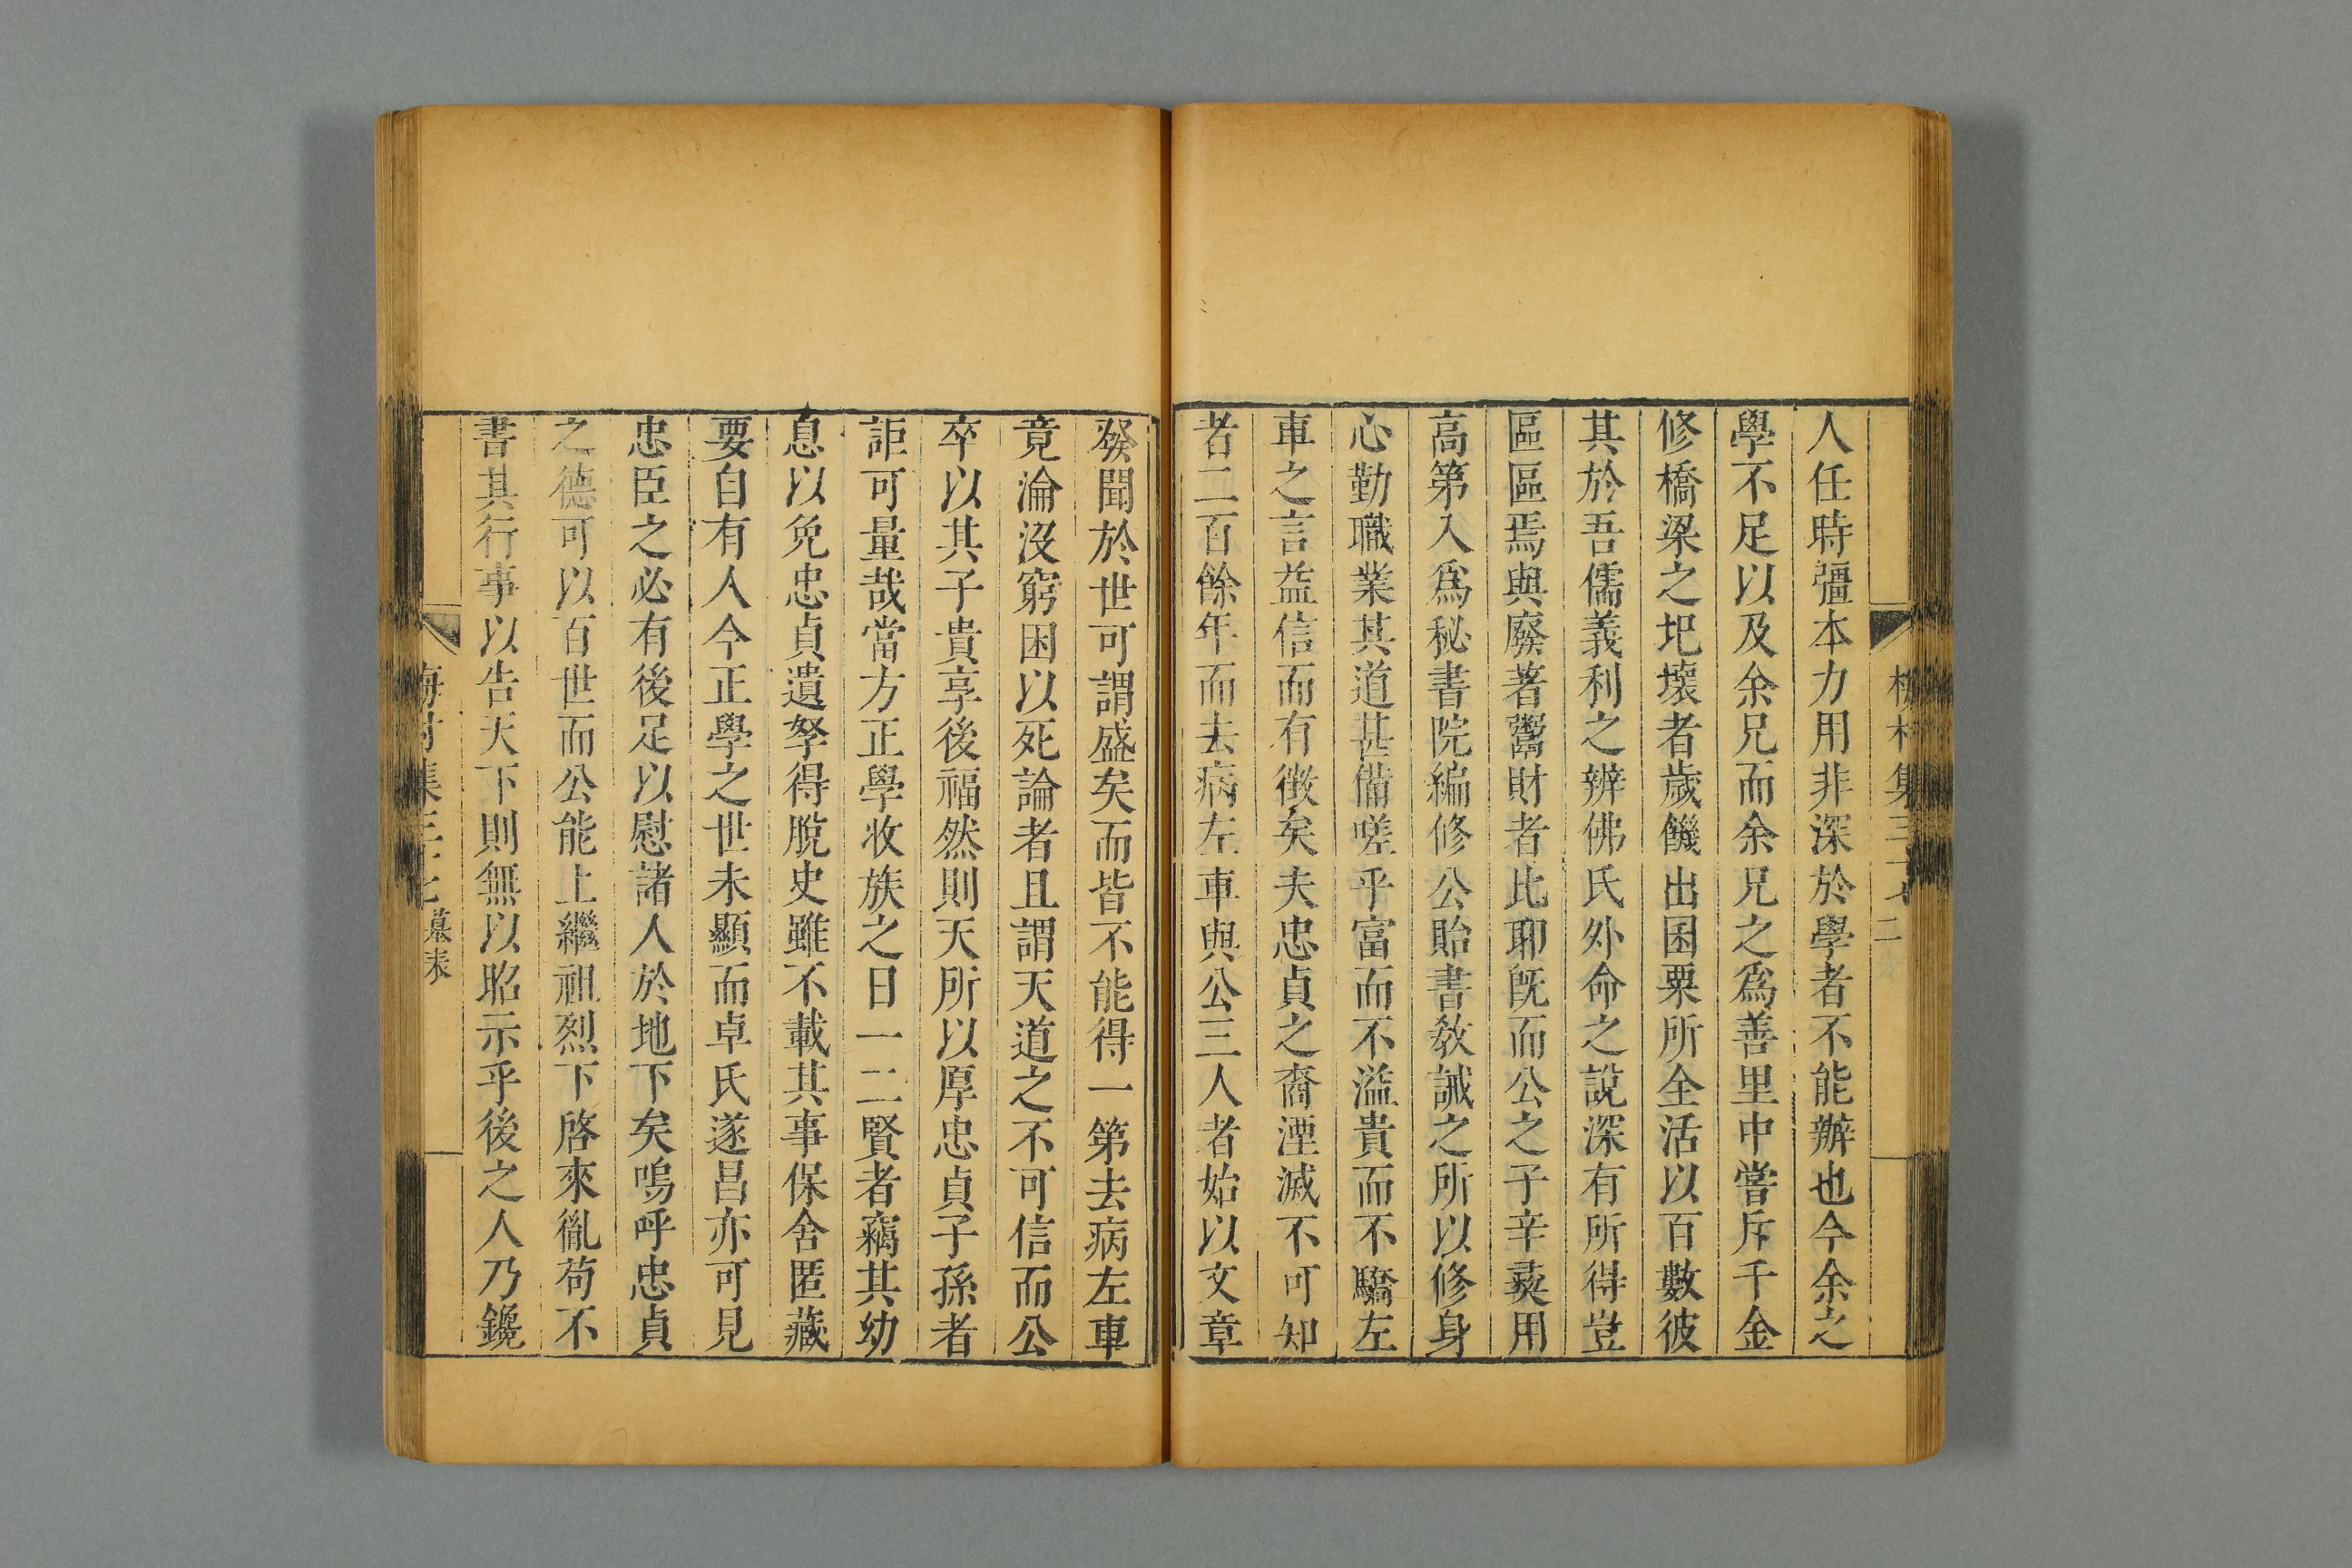 人任時彊本力用非深於學者不能辦也今余之
學不足以及余兄而余兄之爲善里中嘗斥千金
修橋梁之圯壞者歲饑出囷粟所全活以百數彼
其於吾儒義利之辨佛氏外命之說深有所得豈
區區焉與廢著鬻財者比耶旣而公之子辛彛用
高第入爲秘書院編修公貽書敎誡之所以修身
心勤職業其道甚備嗟乎富而不溢貴而不驕左
車之言益信而有徴矣夫忠貞之裔湮滅不可知
者二百餘年而去病左車與公三人者始以文章
發聞於世可謂盛矣而皆不能得一第去病左車
竟淪沒窮困以死論者且謂天道之不可信而公
卒以其子貴享後福然則天所以厚忠貞子孫者
詎可量哉當方正學收族之日一二賢者竊其幼
息以免忠貞遺孥得脫史雖不載其事保舍匿藏
要自有人今正學之世未顯而卓氏遂昌亦可見
忠臣之必有後足以慰諸人於地下矣嗚呼忠貞
之德可以百世而公能上繼祖烈下啓來胤苟不
書其行事以告天下則無以昭示乎後之人乃鑱
梅村集三十七 二
梅村集三十七 墓表